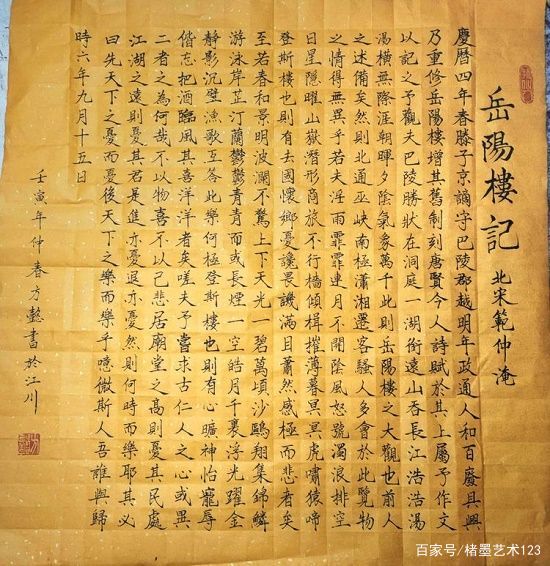 岳陽樓記
北宋範仲淹
慶曆四年春滕子京謫守巴陵郡越明年政通人和百廢具興
乃重修岳陽樓增其舊制刻唐賢今人詩賦於其上屬予作文
以記之予觀夫巴陵勝狀在洞庭一湖銜遠山吞長江浩浩湯
湯橫無際涯朝暉夕陰氣象萬千此則岳陽樓之大觀也前人
之述備矣然則北通巫峽南極瀟湘遷客騷人多會於此覽物
之情得無異乎若夫淫雨霏霏連月不開陰風怒號濁浪排空
日星隱曜山嶽潛形商旅不行檣傾楫摧薄暮冥冥虎嘯猿啼
登斯樓也則有去國懷鄉憂讒畏譏滿目蕭然感極而悲者矣
至若春和景明波瀾不驚上下天光一碧萬頃沙鷗翔集錦鱗
游泳岸芷汀蘭鬱鬱青青而或長煙一空皓月千裏浮光躍金
靜影沉壁漁歌互答此樂何極登斯樓也則有心曠神怡寵辱
偕忘把酒臨風其喜洋洋者矣嗟夫予嘗求古仁人之心或異
二者之為何哉不以物喜不以己悲居廟堂之高則憂其民處
江湖之遠則憂其君是進亦憂退亦憂然則何時而樂耶其必
曰先天下之憂而憂後天下之樂而樂乎噫微斯人吾誰與歸
時六年九月十五日
壬寅年仲春方懿書於江川
百家号/楮墨艺术123